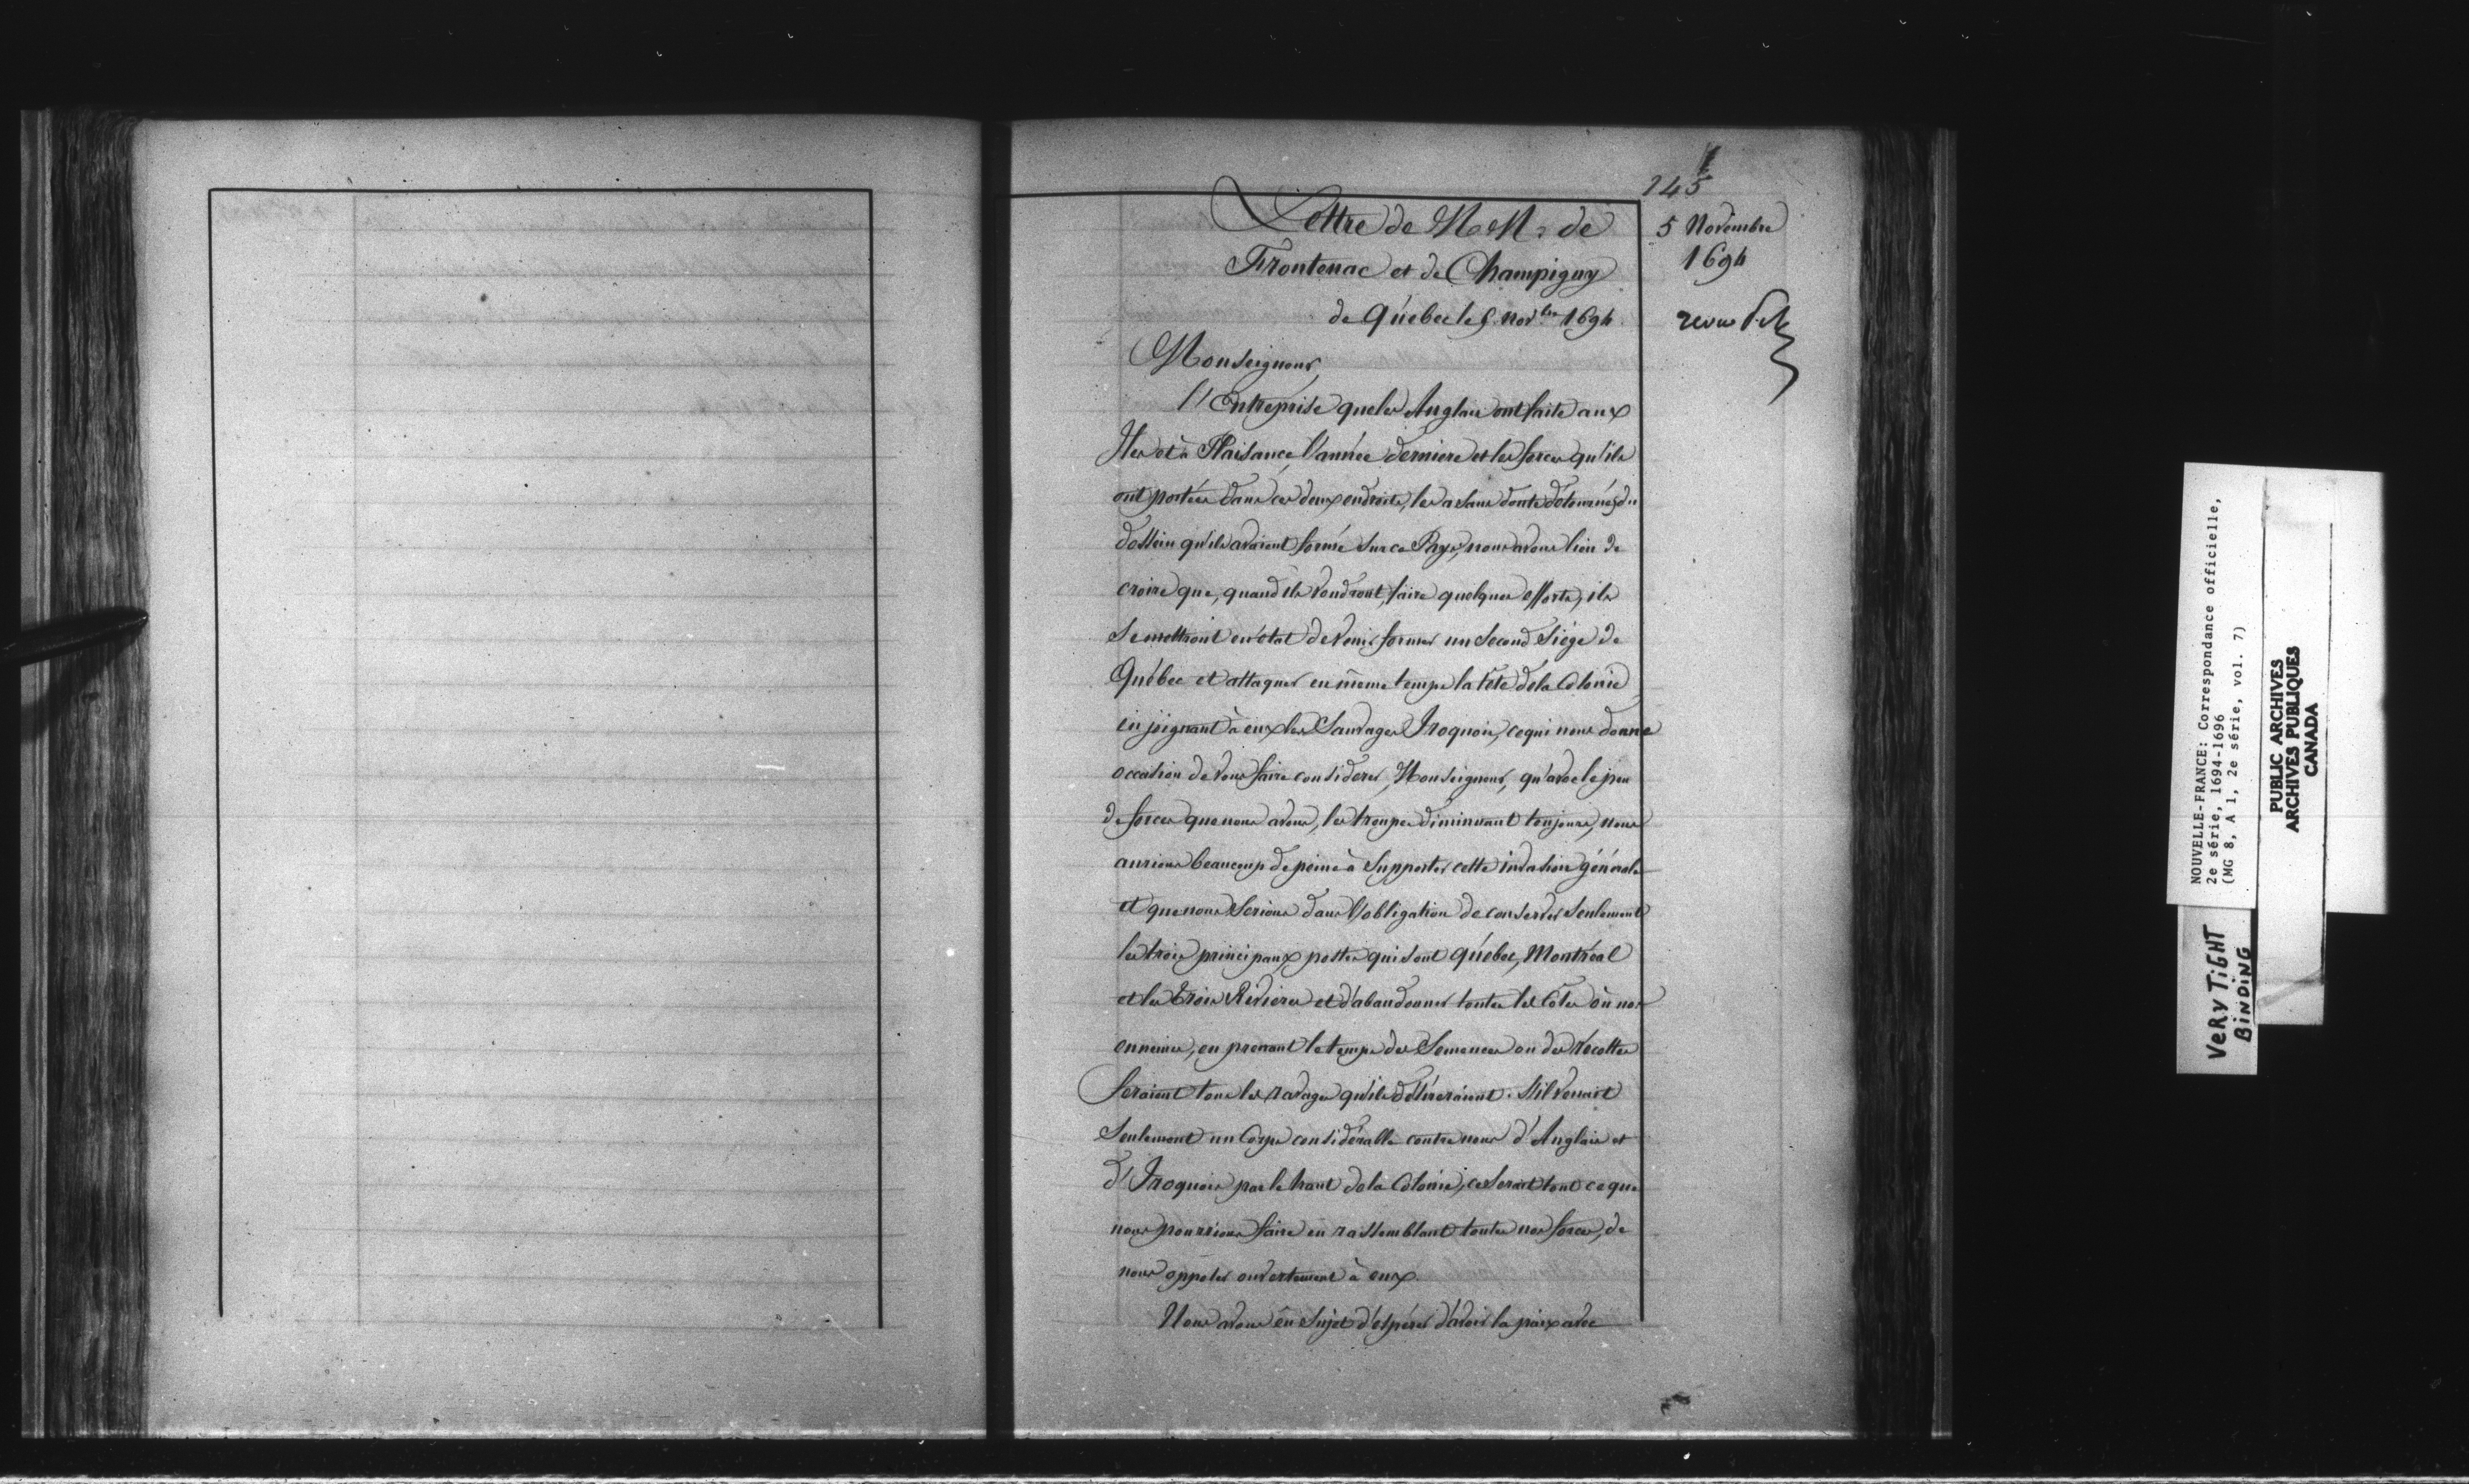 145
Lettre de MM. de
Frontenac et de Champigny
de Québec le 5 nov.bre 1694.
5 Novembre
1694
Monseigneur,
l'Entreprise que les Anglais ont faite aux
Iles et à Plaisance l'année derniere et les forces qu'ils
ont portées dans ces deux endroits, les a sans doute détournés du
dessein qu'ils avaient formé sur ce Pays, nous avons lieu de
croire que, quand ils voudront faire quelques efforts, ils
se mettront en état de venir former un second Siége de
Québec et attaquer en même temps la tête de la Colonie
en joignant à eux les Sauvages Iroquois, ce qui nous donne
occasion de vous faire considerer, Monseigneur, qu'avec le peu
de forces que nous avons, les troupes diminuant toujours, nous
aurions beaucoup de peine à supporter cette invasion générale
et que nous serions dans l'obligation de conserver seulement
les trois principaux postes qui sont Québec, Montréal
et les trois Rivieres et d'abandonner toutes les Côtes où nos
ennemis, en prenant le temps des Semences ou des récoltes
feraient tous les ravages qu'ils désireraient. S'il venait
seulement un Corps considérable contre nous d'Anglais et
d'Iroquois par le haut de la Colonie, ce serait tout ce que
nous pourrions faire en rassemblant toutes nos forces, de
nous opposer ouvertement à eux.
Nous avons eu sujet d'espérer d'avoir la paix avec
NOUVELLE-FRANCE: Correspondance officielle,
2e série, 1694-1696
(MG 8, A 1, 2e série, vol. 7)
PUBLIC ARCHIVES
ARCHIVES PUBLIQUES
CANADA
VERY TIGHT
BINDING